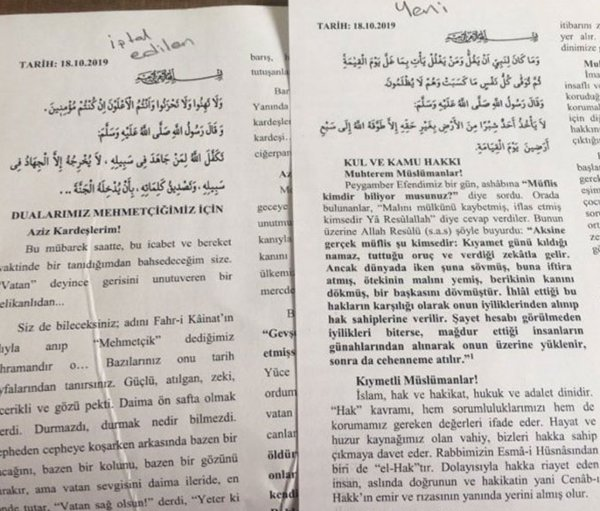 iptal
edilen
TARİH: 18.10.2019
وَلَا تَهِنُوا وَلَا تَحْزَنُوا وَاَنْتُمُ الْاَعْلَوْنَ اِنْ كُنْتُمْ مُؤْمِنٖينَ.
وَ قَالَ رَسُولُ اللّٰهِ صَلَّى اللّٰهُ عَلَيْهِ وَسَلَّمَ:
تَكَفَّلَ اللّٰهُ لِمَنْ جَاهَدَ فِى سَبِيلِهِ ، لَا يُخْرِجُهُ إِلَّا الْجِهَادُ فِى
سَبِيلِهِ ، وَتَصْدِيقُ كَلِمَاتِهِ ، بِأَنْ يُدْخِلَهُ الْجَنَّةَ . . .
DUALARIMIZ MEHMETÇİĞİMİZ İÇİN
Aziz Kardeşlerim!
Bu mübarek saatte, bu icabet ve bereket
vaktinde bir tanıdığımdan bahsedeceğim size.
“Vatan” deyince gerisini unutuveren bir
delikanlıdan...
Siz de bileceksiniz; adını Fahr-i Kâinat’ın
adıyla anıp “Mehmetçik” dediğimiz
kahramandır o... Bazılarınız onu tarih
sayfalarından tanırsınız. Güçlü, atılgan, zeki,
becerikli ve gözü pekti. Daima ön safta olmak
derdi. Durmazdı, durmak nedir bilmezdi.
Cepheden cepheye koşarken arkasında bazen bir
bacağını, bazen bir kolunu, bazen bir gözünü
bırakır, ama vatan sevgisini daima ileride, en
önde tutar. “Vatan sağ olsun!” derdi, “Yeter ki
barış, h
tutuşanla
Bar
Yanında
kardeşler
kardeşi...
ciğerpar
Az
geceye
unutun
kanıyla
kanın
ülkemiz
merced
“Gevş
etmişs
Yüce
ordum
vatan
canlar
öldür
onlar
kendi
Yeni
TARİH: 18.10.2019
وَمَا كَانَ لِنَبِيٍّ اَنْ يَغُلَّ وَمَنْ يَغْلُلْ يَأْتِ بِمَا غَلَّ يَوْمَ الْقِيٰمَةِ
ثُمَّ تُوَفّٰى كُلُّ نَفْسٍ مَا كَسَبَتْ وَهُمْ لَا يُظْلَمُونَ.
وَقَالَ رَسُولُ اللّٰهِ صَلَّى اللّٰهُ عَلَيْهِ وَسَلَّمَ:
لَا يَأْخُذُ أَحَدٌ شِبْرًا مِنَ الْأَرْضِ بِغَيْرِ حَقِّهِ إِلَّا طَوَّقَهُ اللّٰهُ إِلَى سَبْعِ
أَرَضِينَ يَوْمَ الْقِيَامَةِ.
KUL VE KAMU HAKKI
Muhterem Müslümanlar!
Peygamber Efendimiz bir gün, ashâbına “Müflis
kimdir biliyor musunuz?” diye sordu. Orada
bulunanlar, “Malını mülkünü kaybetmiş, iflas etmiş
kimsedir Yâ Resûlallah” diye cevap verdiler. Bunun
üzerine Allah Resûlü (s.a.s) şöyle buyurdu: “Aksine
gerçek müflis şu kimsedir: Kıyamet günü kıldığı
namaz, tuttuğu oruç ve verdiği zekâtla gelir.
Ancak dünyada iken şuna sövmüş, buna iftira
atmış, ötekinin malını yemiş, berikinin kanını
dökmüş, bir başkasını dövmüştür. İhlâl ettiği bu
hakların karşılığı olarak onun iyiliklerinden alınıp
hak sahiplerine verilir. Şayet hesabı görülmeden
iyilikleri biterse, mağdur ettiği insanların
günahlarından alınarak onun üzerine yüklenir,
sonra da cehenneme atılır.”1
Kıymetli Müslümanlar!
İslam, hak ve hakikat, hukuk ve adalet dinidir.
“Hak” kavramı, hem sorumluluklarımızı hem de
korumamız gereken değerleri ifade eder. Hayat ve
huzur kaynağımız olan vahiy, bizleri hakka sahip
çıkmaya davet eder. Rabbimizin Esmâ-i Hüsnâsından
biri de “el-Hak”tır. Dolayısıyla hakka riayet eden
insan, aslında doğrunun ve hakikatin yani Cenâb-ı
Hakk’ın emir ve rızasının yanında yerini almış olur.
itibarını z
yer alır.
dinimize g
Mu
insaflı ve
koruduğu
korumak
için diğ
hakkını
çıktığın